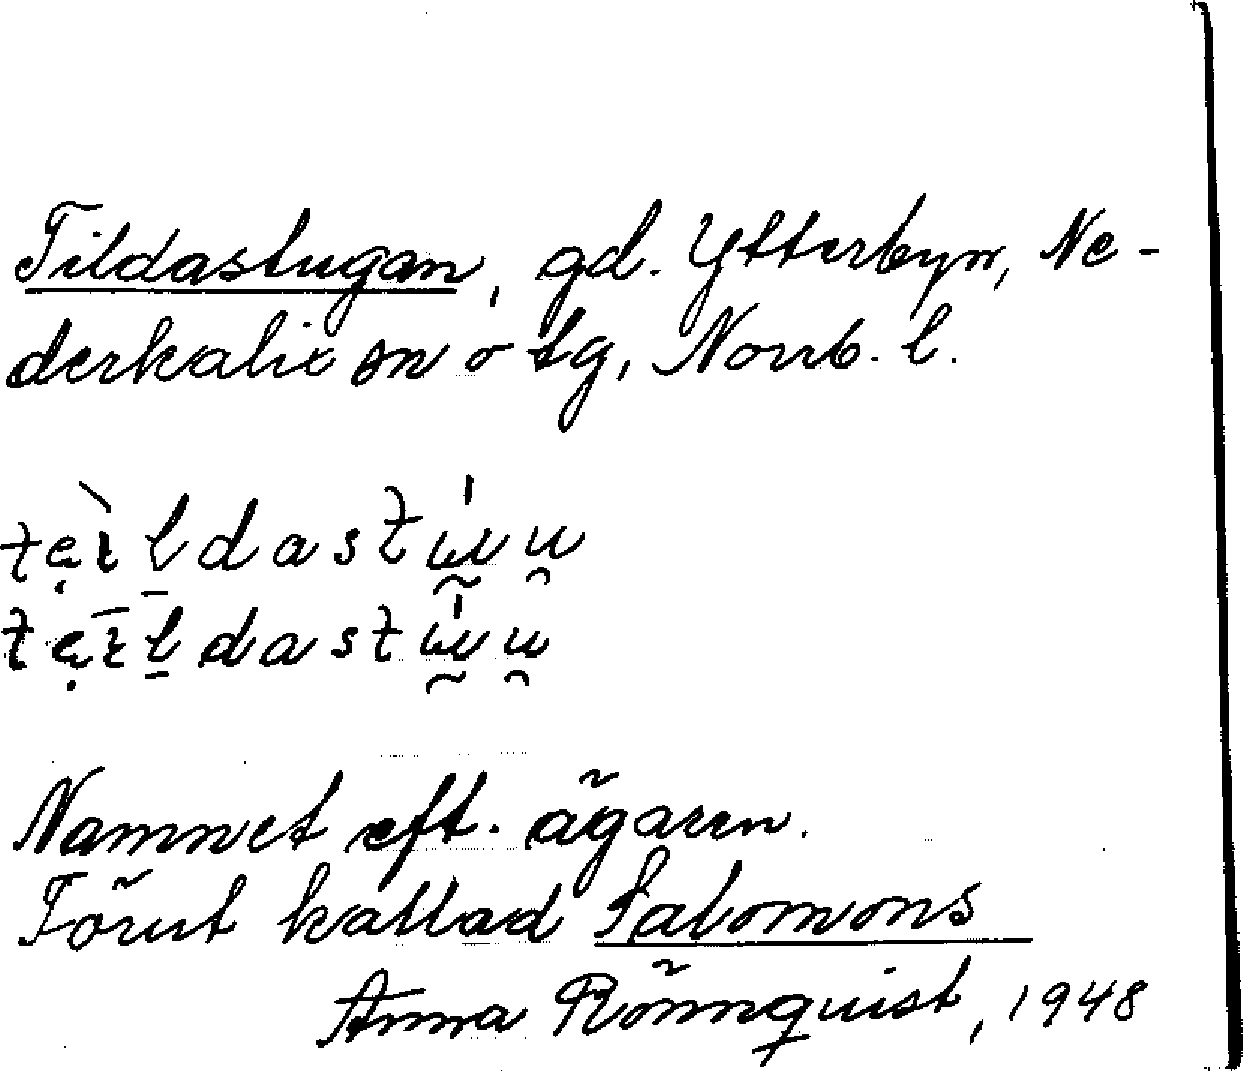 Tildastugan, gd. Ytterbyn, Ne-
derkalix sn o tg, Norrb. l.
Namnet eft. ägaren.
Förut kallad Salomons
Anna Rönnquist, 1948